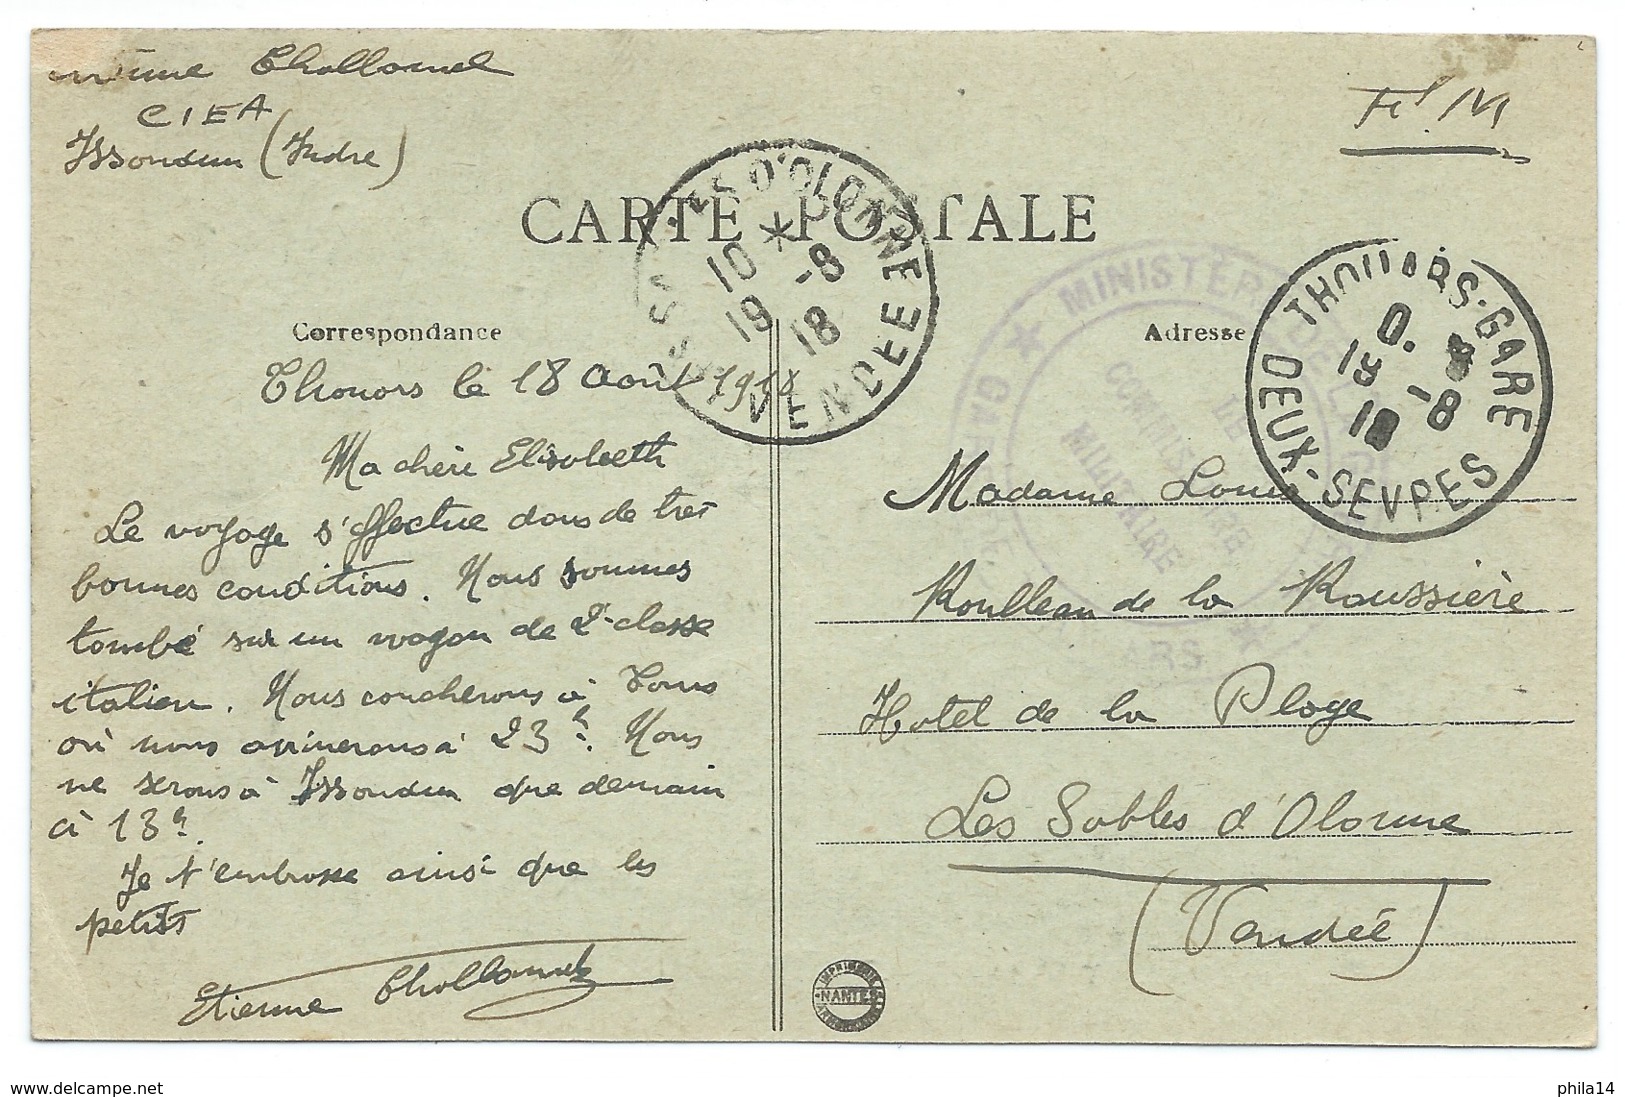 Etienne Chollamel
CIEA
Issoudun (Indre)
F.M
CARTE POSTALE
LES SABLES D'OLONNE
10 * -8
19 18
VENDEE
Correspondance
Thouars le 18 Août 1918
Ma chère Elisabeth
Le voyage s'effectue dans de très
bonnes conditions. Nous sommes
tombé sur un wagon de 2e classe
italien. Nous coucherons à Tours
où nous arriverons à 23h. Nous
ne serons à Issoudun que demain
à 13h.
Je t'embrasse ainsi que les
petits
Etienne Chollamel
Adresse
MINISTÈRE DE LA GUERRE
COMMISSAIRE
MILITAIRE
GARE
THOUARS-GARE
19 -8
18
DEUX-SEVRES
Madame Louis
Roulleau de la Roussière
Hotel de la Plage
Les Sables d'Olonne
(Vendée)
IMPRIMERIES
NANTES
www.delcampe.net
phila14